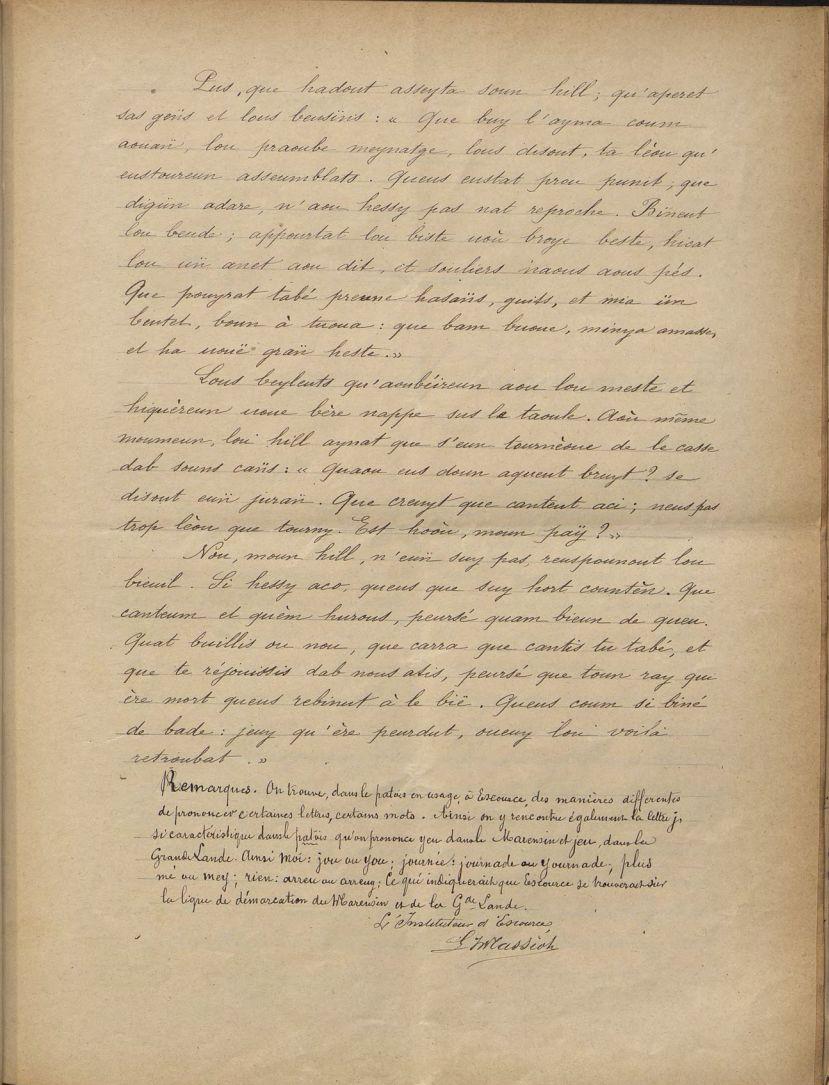 Pus, que hadout asseyta soun hill; qu'aperet
sas gens et lous beusïns : « Que buy l'ayma coum
aouaň, lou praoube meynatge, lous disout, ta lèou qu'
eustoureun asseumblats. Queus eustat prou punit; que
digün adare, n'aou hessy pas nat reproche. Bineut
lou beude; appourtat lou biste uoù broye beste, hicat
lou uň anet aou dit, et souliers naous aous pés.
Que pouyrat tabé preune hasaňs, guits, et mia üm
beutet, boun à tuoua : que bam buoue, minya amasse,
et ha uouë graň heste. »
Lous beyleuts qu'aoubéireun aou lou meste et
hiquèreun uoue bère nappe sus le taoule. Aoù même
moumeun, lou hill aynat que s'eun tournèoue de le casse
dab souns caňs : « Quaou eus doun aqueut bruyt ? se
disout euň juraň. Que creuyt que canteut aci; neus pas
trop lèou que tourny. Est hoòu, moun paÿ ? »
Nou, moun hill, n'euň suy pas, reuspounout lou
bieuil. Si hessy aco, queus que suy hort countèn. Que
canteum et quèm hurous, peursé quam bieun de queu.
Quat buillis ou nou, que carra que cantis tu tabé, et
que te réjouissis dab nous atis, peursé que toun ray qui
ère mort queus rebinut à le bië. Queus coum si biné
de bade : jeuy qu'ère peurdut, oueuy lou voilà
retroubat. »
Remarques. On trouve, dans le patois en usage, à Escource, des manières différentes
de prononcer certaines lettres, certains mots. Ainsi on y rencontre également la lettre j,
si caractéristique dans le patois qu'on prononce yeu dans le Marensin et jeu, dans la
Grande Lande. Ainsi moi : jou ou you; journée : journade ou yournade; plus
mé ou mey; rien : arreu ou arreuy; Ce qui indiquerait que Escource se trouverait sur
la ligne de démarcation du Marensin et de la Gde Lande.
L'Instituteur d'Escource,